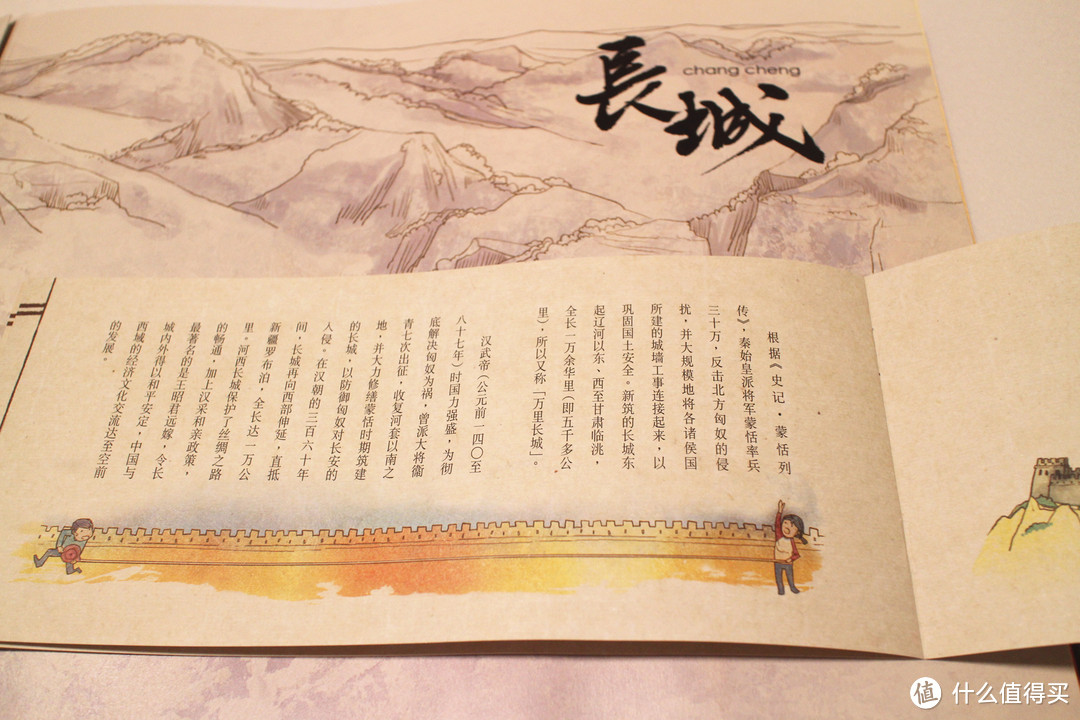 長城
chang cheng
根据《史记·蒙恬列
传》，秦始皇派将军蒙恬率兵
三十万，反击北方匈奴的侵
扰，并大规模地将各诸侯国
所建的城墙工事连接起来，以
巩固国土安全。新筑的长城东
起辽河以东、西至甘肃临洮，
全长一万余华里（即五千多公
里），所以又称「万里长城」。
汉武帝（公元前一四〇至
八十七年）时国力强盛，为彻
底解决匈奴为祸，曾派大将衞
青七次出征，收复河套以南之
地，并大力修缮蒙恬时期筑建
的长城，以防御匈奴对长安的
入侵。在汉朝的三百六十年
间，长城再向西部伸延，直抵
新疆罗布泊，全长达一万公
里。河西长城保护了丝绸之路
的畅通，加上汉采和亲政策，
最著名的是王昭君远嫁，令长
城内外得以和平安定，中国与
西域的经济文化交流达至空前
的发展。
值 什么值得买